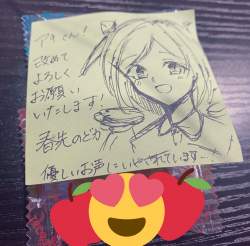 アキくん!
改めて
よろしく
お願い
いたします!
春先のどか
優しいお声にいやされています…